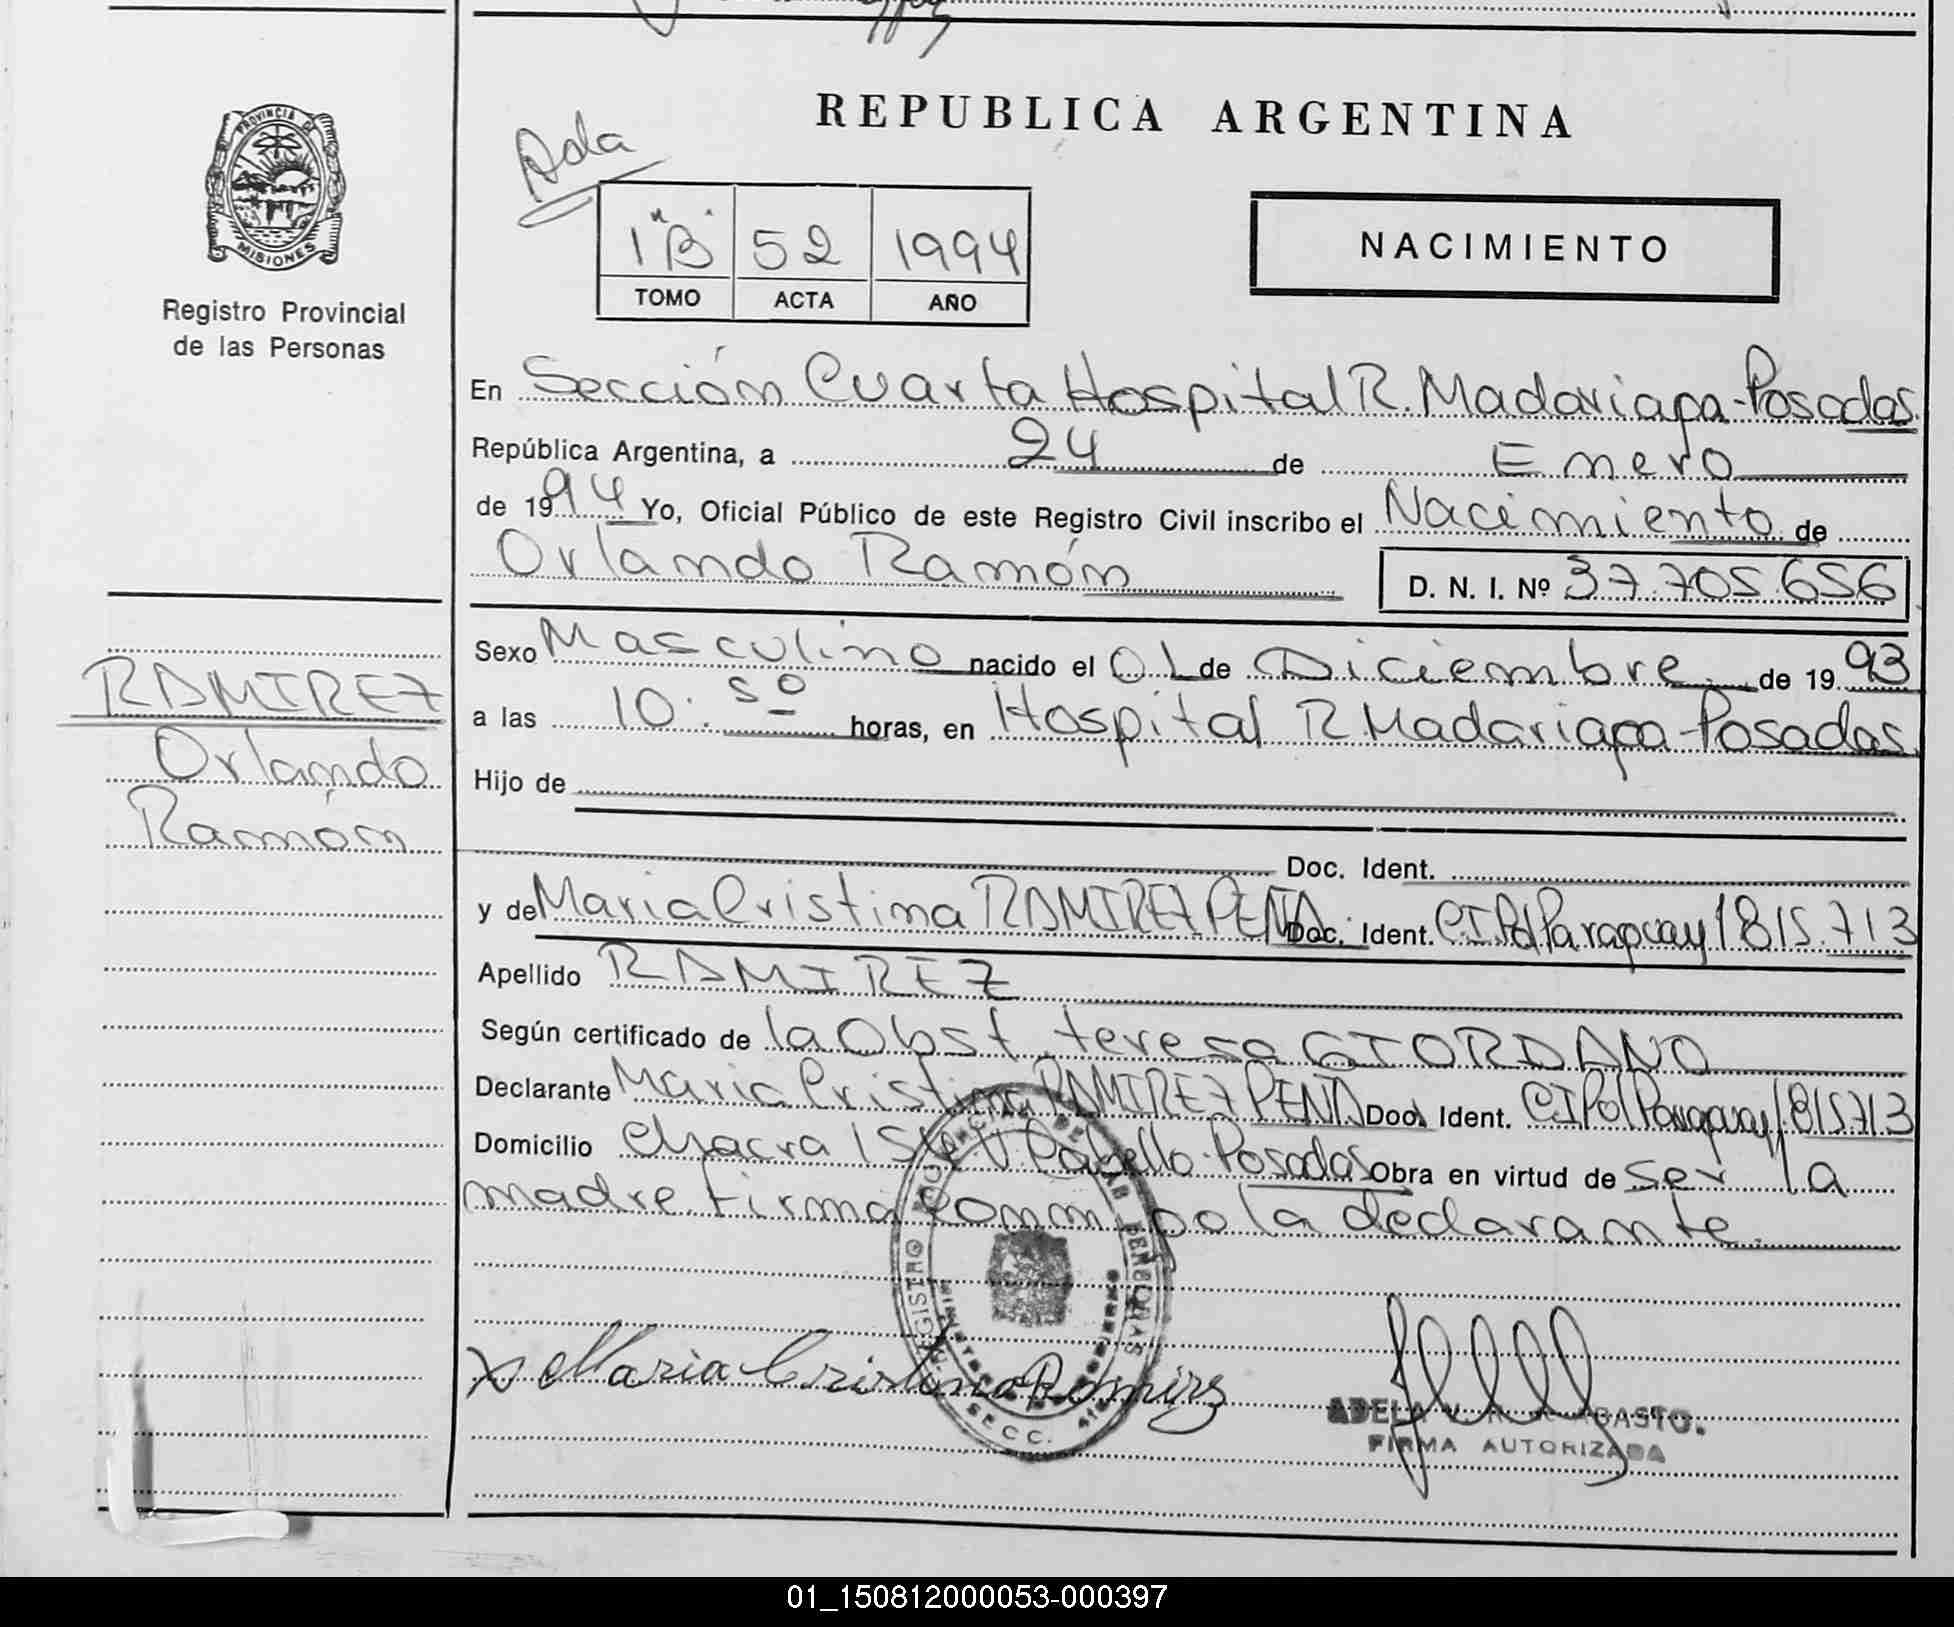 REPUBLICA ARGENTINA
PROVINCIA DE
MISIONES
Registro Provincial
de las Personas
Ada
1 "B" 52 1994
TOMO ACTA AÑO
NACIMIENTO
En Sección Cuarta Hospital R. Madariaga-Posadas.
República Argentina, a 24 de Enero
de 1994 Yo, Oficial Público de este Registro Civil inscribo el Nacimiento de
Orlando Ramón
D. N. I. Nº 37.705.656
RAMIREZ
Orlando
Ramón
Sexo Masculino nacido el 01 de Diciembre de 1993
a las 10:50 horas, en Hospital R Madariaga-Posadas.
Hijo de
Doc. Ident.
y de Maria Cristina RAMIREZ PEÑA Doc. Ident. C.I.Pol Paraguay 1815.713
Apellido RAMIREZ
Según certificado de la Obst. teresa GIORDANO
Declarante Maria Cristina RAMIREZ PEÑA Doc. Ident. C I Pol Paraguay 1815713
Domicilio Chacra Posadas Obra en virtud de ser la
madre. Firma la declarante.
REGISTRO PROVINCIAL DE LAS PERSONAS
SECC.
Maria Cristina Ramirez
ADELA V.
FIRMA AUTORIZADA
01_150812000053-000397